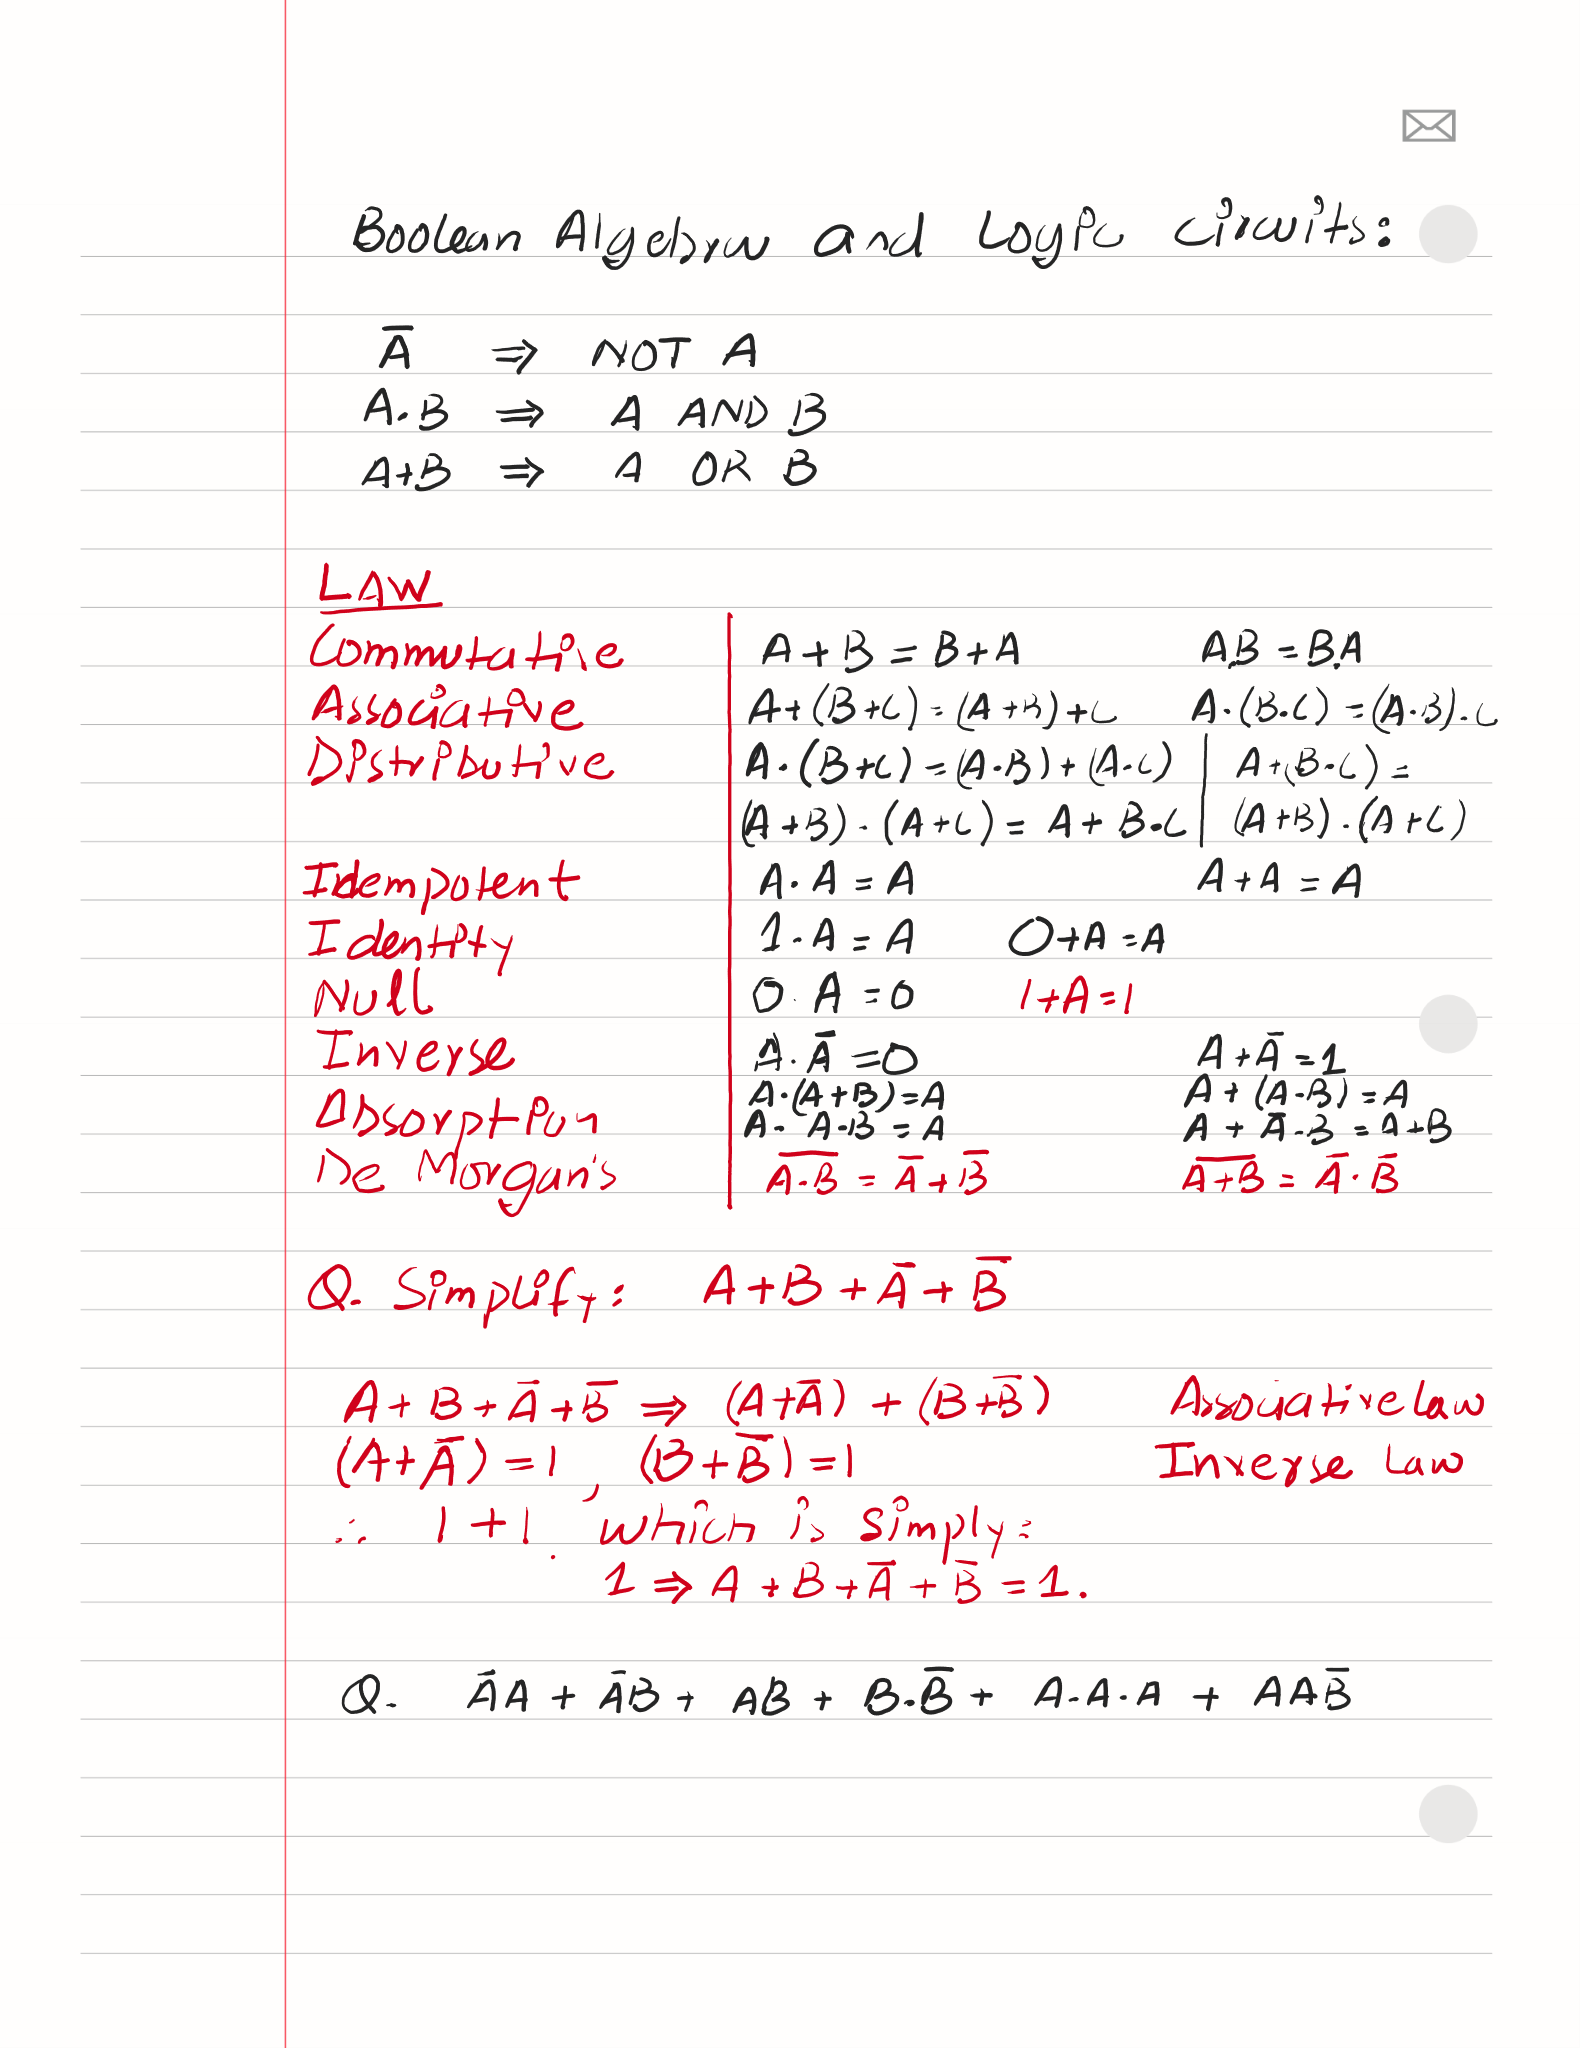 Boolean Algebra and Logic circuits:
A̅ ⇒ NOT A
A·B ⇒ A AND B
A+B ⇒ A OR B
LAW
Commutative A + B = B + A A.B = B.A
Associative A + (B + C) = (A + B) + C A·(B·C) = (A·B)·C
Distributive A·(B+C) = (A·B) + (A·C) | A+(B·C) =
(A+B)·(A+C) = A + B·C | (A+B)·(A+C)
Idempotent A·A = A A + A = A
Identity 1·A = A 0+A = A
Null 0·A = 0 1+A = 1
Inverse A·A̅ = 0 A + A̅ = 1
Absorption A·(A+B) = A A + (A·B) = A
A·A·B = A A + A̅·B = A+B
De Morgan's \overline{A·B} = A̅ + B̅ \overline{A+B} = A̅·B̅
Q. Simplify: A + B + A̅ + B̅
A + B + A̅ + B̅ ⇒ (A+A̅) + (B+B̅) Associative law
(A+A̅) = 1, (B+B̅) = 1 Inverse Law
∴ 1 + 1. which is simply:
1 ⇒ A + B + A̅ + B̅ = 1.
Q. A̅A + A̅B + AB + B·B̅ + A·A·A + AAB̅